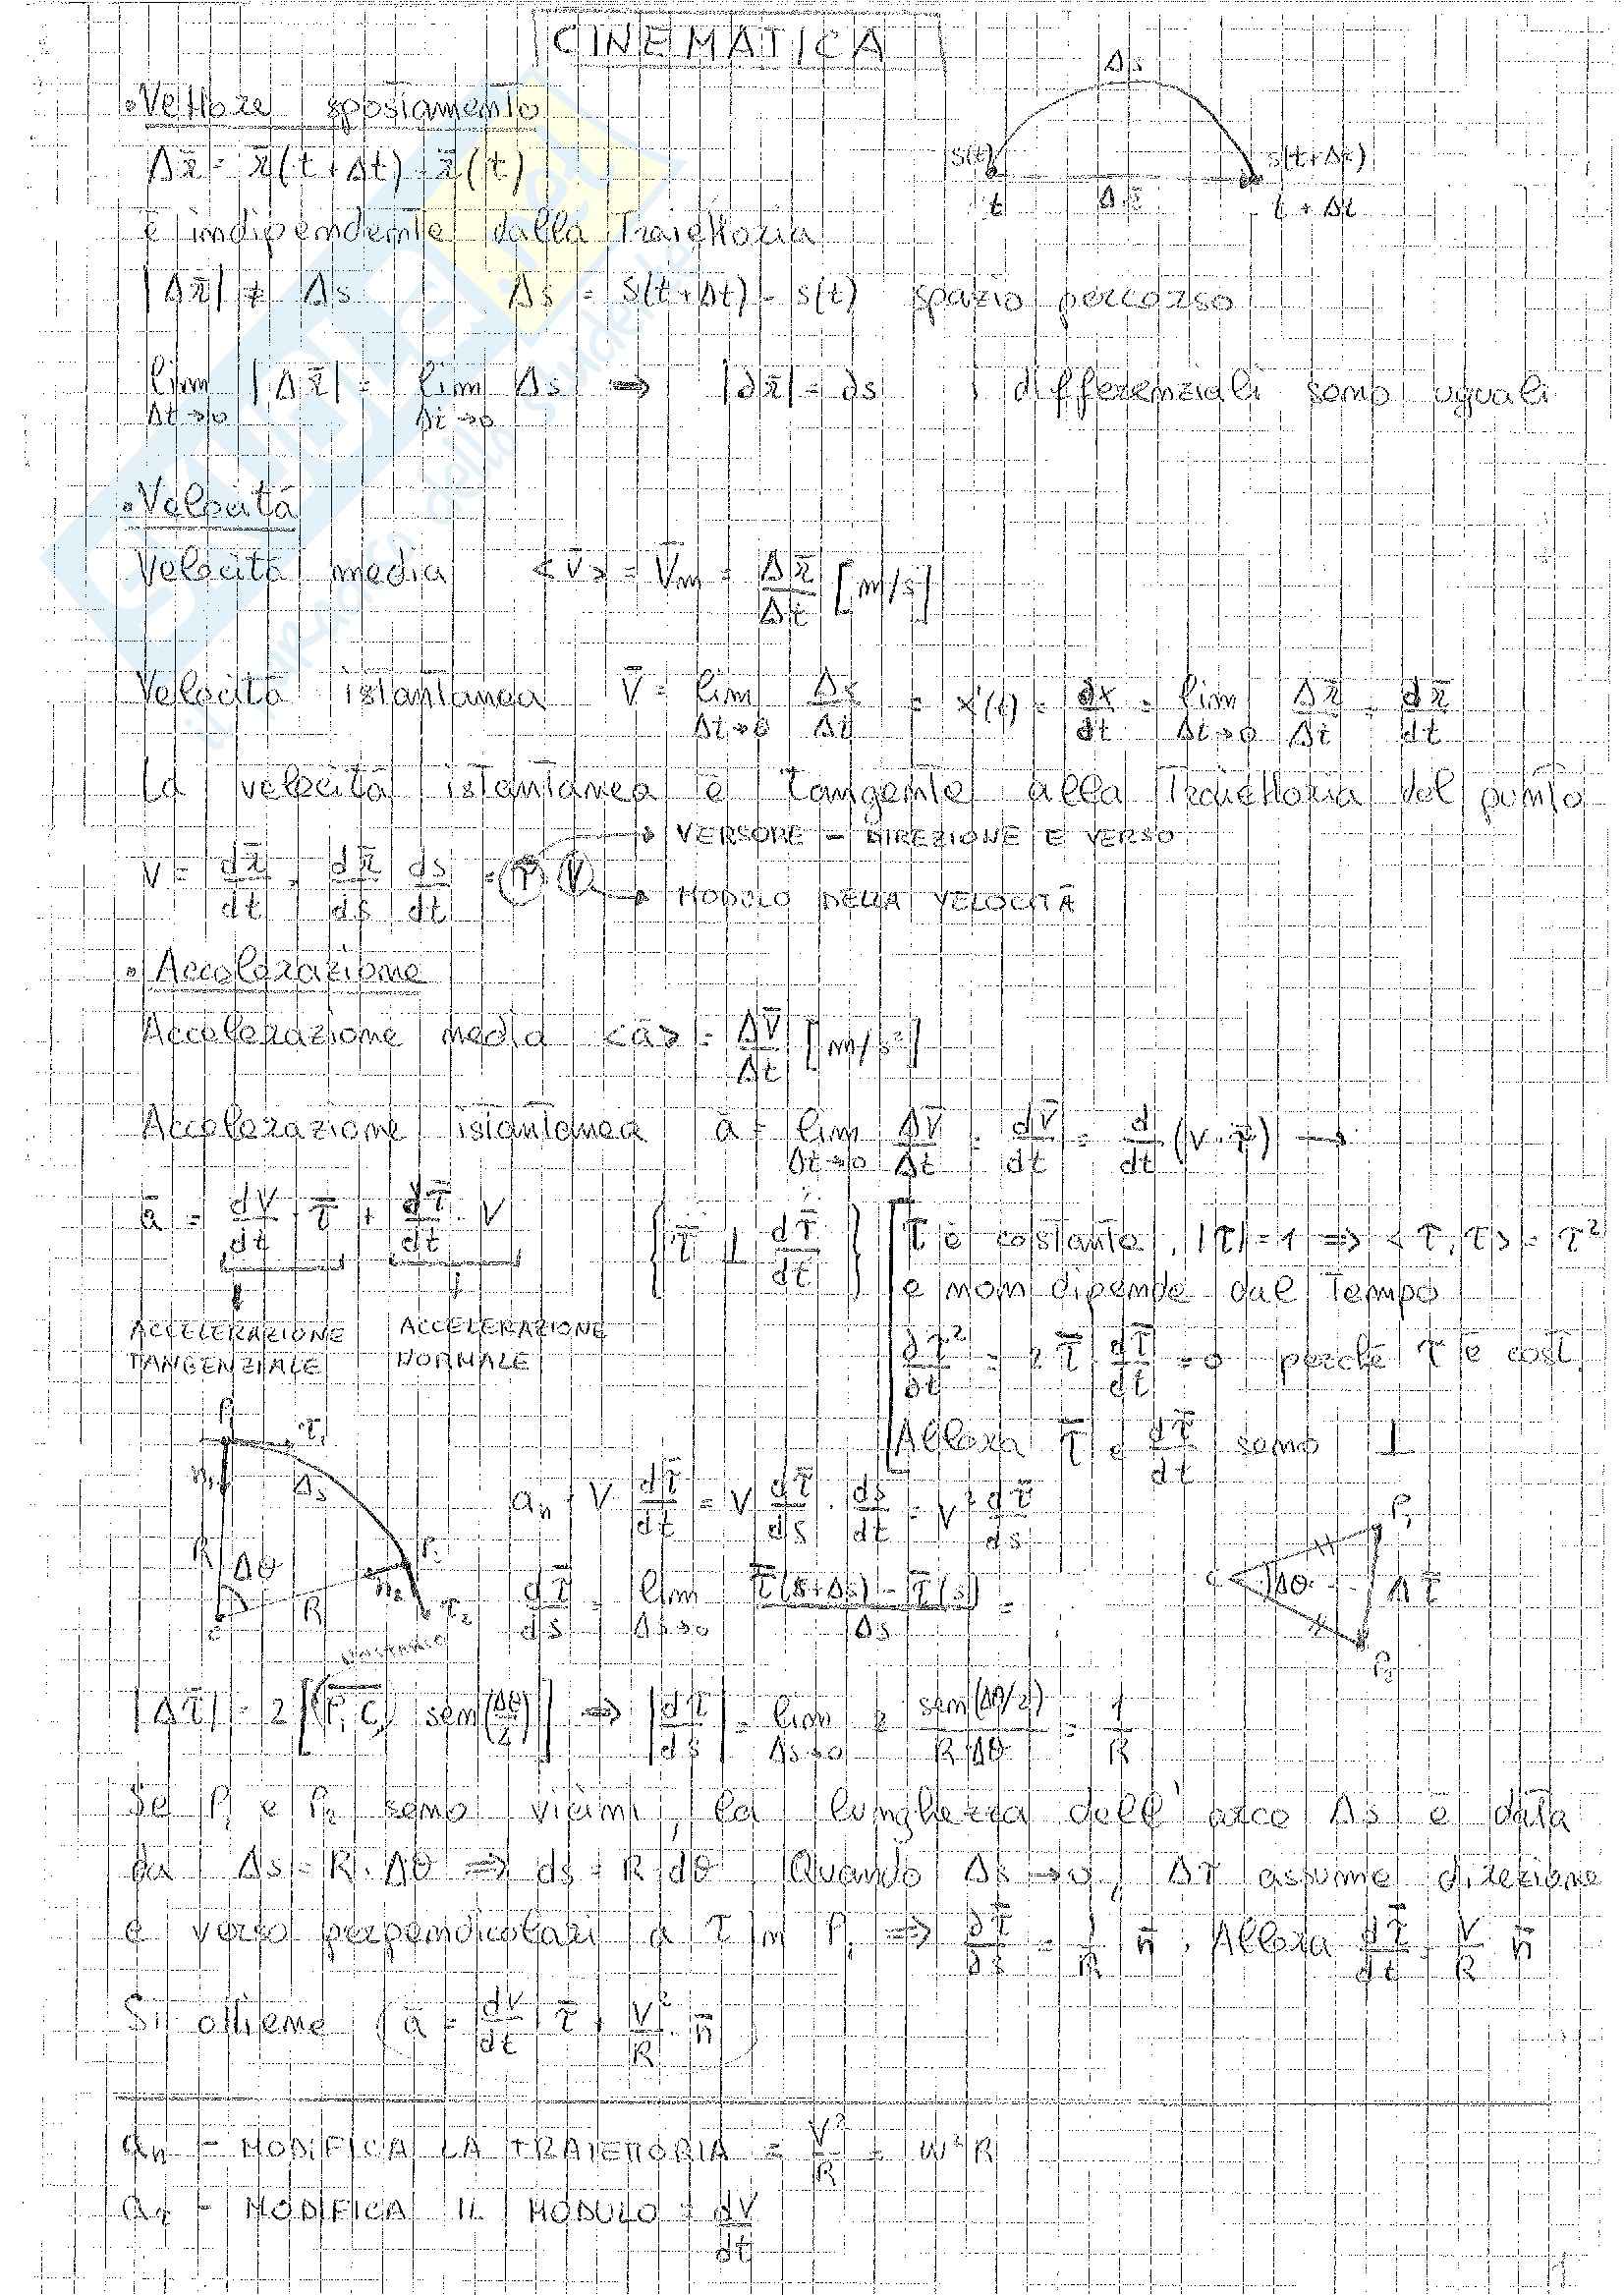 CINEMATICA
Δs
• Vettore spostamento
s(t) s(t+Δt)
Δr̄ = r̄(t+Δt) - r̄(t)
t Δr̄ t+Δt
è indipendente dalla traiettoria
|Δr̄| ≠ Δs Δs = s(t+Δt) - s(t) spazio percorso
lim |Δr̄| = lim Δs ⇒ |dr̄| = ds i differenziali sono uguali
Δt→0 Δt→0
• Velocità
Velocità media <v̄> = v̄m = Δr̄/Δt [m/s]
Velocità istantanea v̄ = lim Δt→0 Δx/Δt = x'(t) = dx/dt = lim Δt→0 Δr̄/Δt = dr̄/dt
La velocità istantanea è tangente alla traiettoria del punto
→ VERSORE - DIREZIONE E VERSO
v = dr̄/dt = dr̄/ds ds/dt = τ̄ v
→ MODULO DELLA VELOCITÀ
• Accelerazione
Accelerazione media <ā> = Δv̄/Δt [m/s²]
Accelerazione istantanea ā = lim Δt→0 Δv̄/Δt = dv̄/dt = d/dt (v·τ̄) →
ā = dv/dt τ̄ + dτ̄/dt · v
τ̄ ⊥ dτ̄/dt
τ è costante, |τ|=1 ⇒ <τ,τ> = τ²
e non dipende dal tempo
ACCELERAZIONE TANGENZIALE
ACCELERAZIONE NORMALE
dτ²/dt = 2 τ̄ dτ̄/dt = 0 perché τ è cost.
Allora τ̄ e dτ̄/dt sono ⊥
P₁ τ₁
n₁ Δs
R Δθ P₂
n₂
c R τ₂
an = v dτ̄/dt = v dτ̄/ds · ds/dt = v² dτ̄/ds
P₁
c Δθ Δτ̄
P₂
dτ̄/ds = lim Δs→0 τ̄(s+Δs) - τ̄(s)/Δs =
|Δτ̄| = 2 |(P₁c) sen(Δθ/2)| ⇒ |dτ/ds| = lim Δs→0 2 sen(Δθ/2)/RΔθ = 1/R
Se P₁ e P₂ sono vicini, la lunghezza dell'arco Δs è data
da Δs = R·Δθ ⇒ ds = R dθ Quando Δs→0, Δτ assume direzione
e verso perpendicolari a τ in P₁ ⇒ dτ̄/ds = 1/R n̄. Allora dτ̄/dt = v/R n̄
Si ottiene ā = dv/dt τ̄ + v²/R · n̄
an - MODIFICA LA TRAIETTORIA = v²/R = w²R
aτ - MODIFICA IL MODULO = dv/dt
1